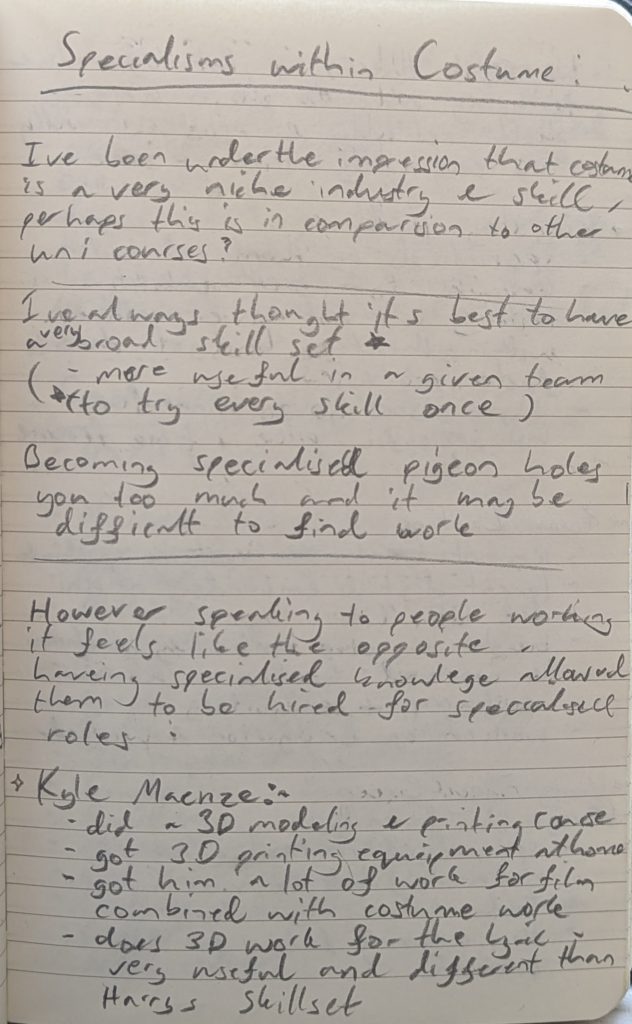 Specialisms within Costume:
I've been under the impression that costum
is a very niche industry & skill,
perhaps this is in comparision to other
uni courses?
I've always thought it's best to have
a very broad skill set *
( - more useful in a given team
(*to try every skill once )
Becoming specialised pigeon holes
you too much and it may be
difficult to find work
However speaking to people working
it feels like the opposite,
haveing specialised knowlege allowed
them to be hired for specialised
roles :
Kyle :-
- did a 3D modeling & printing course
- got 3D printing equipment at home
- got him a lot of work for film
combined with costume work
- does 3D work for the -
very useful and different than
Harrys skillset